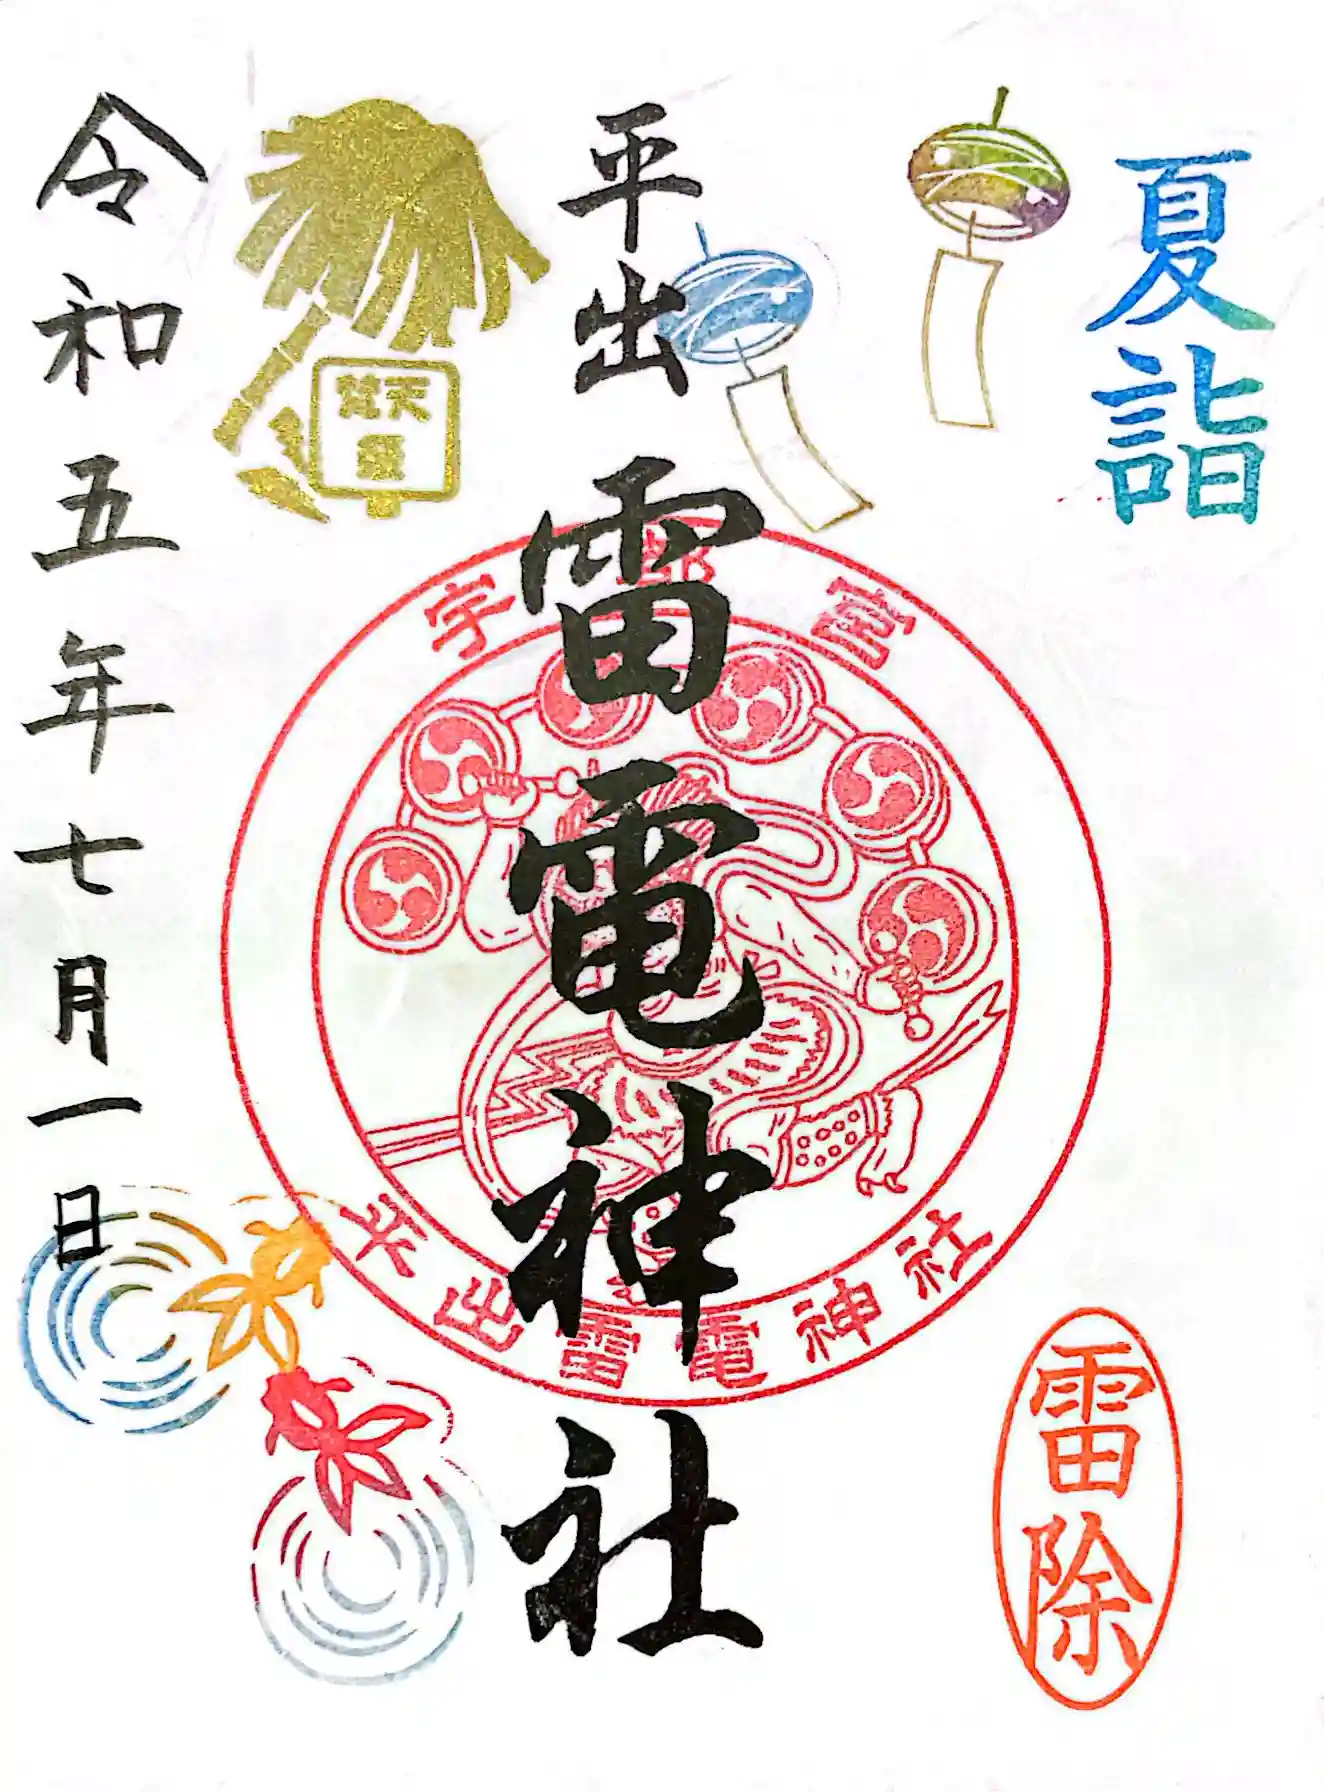 夏詣
平出
雷電神社
令和五年七月一日
梵天
祭
宇都宮
平出雷電神社
雷除